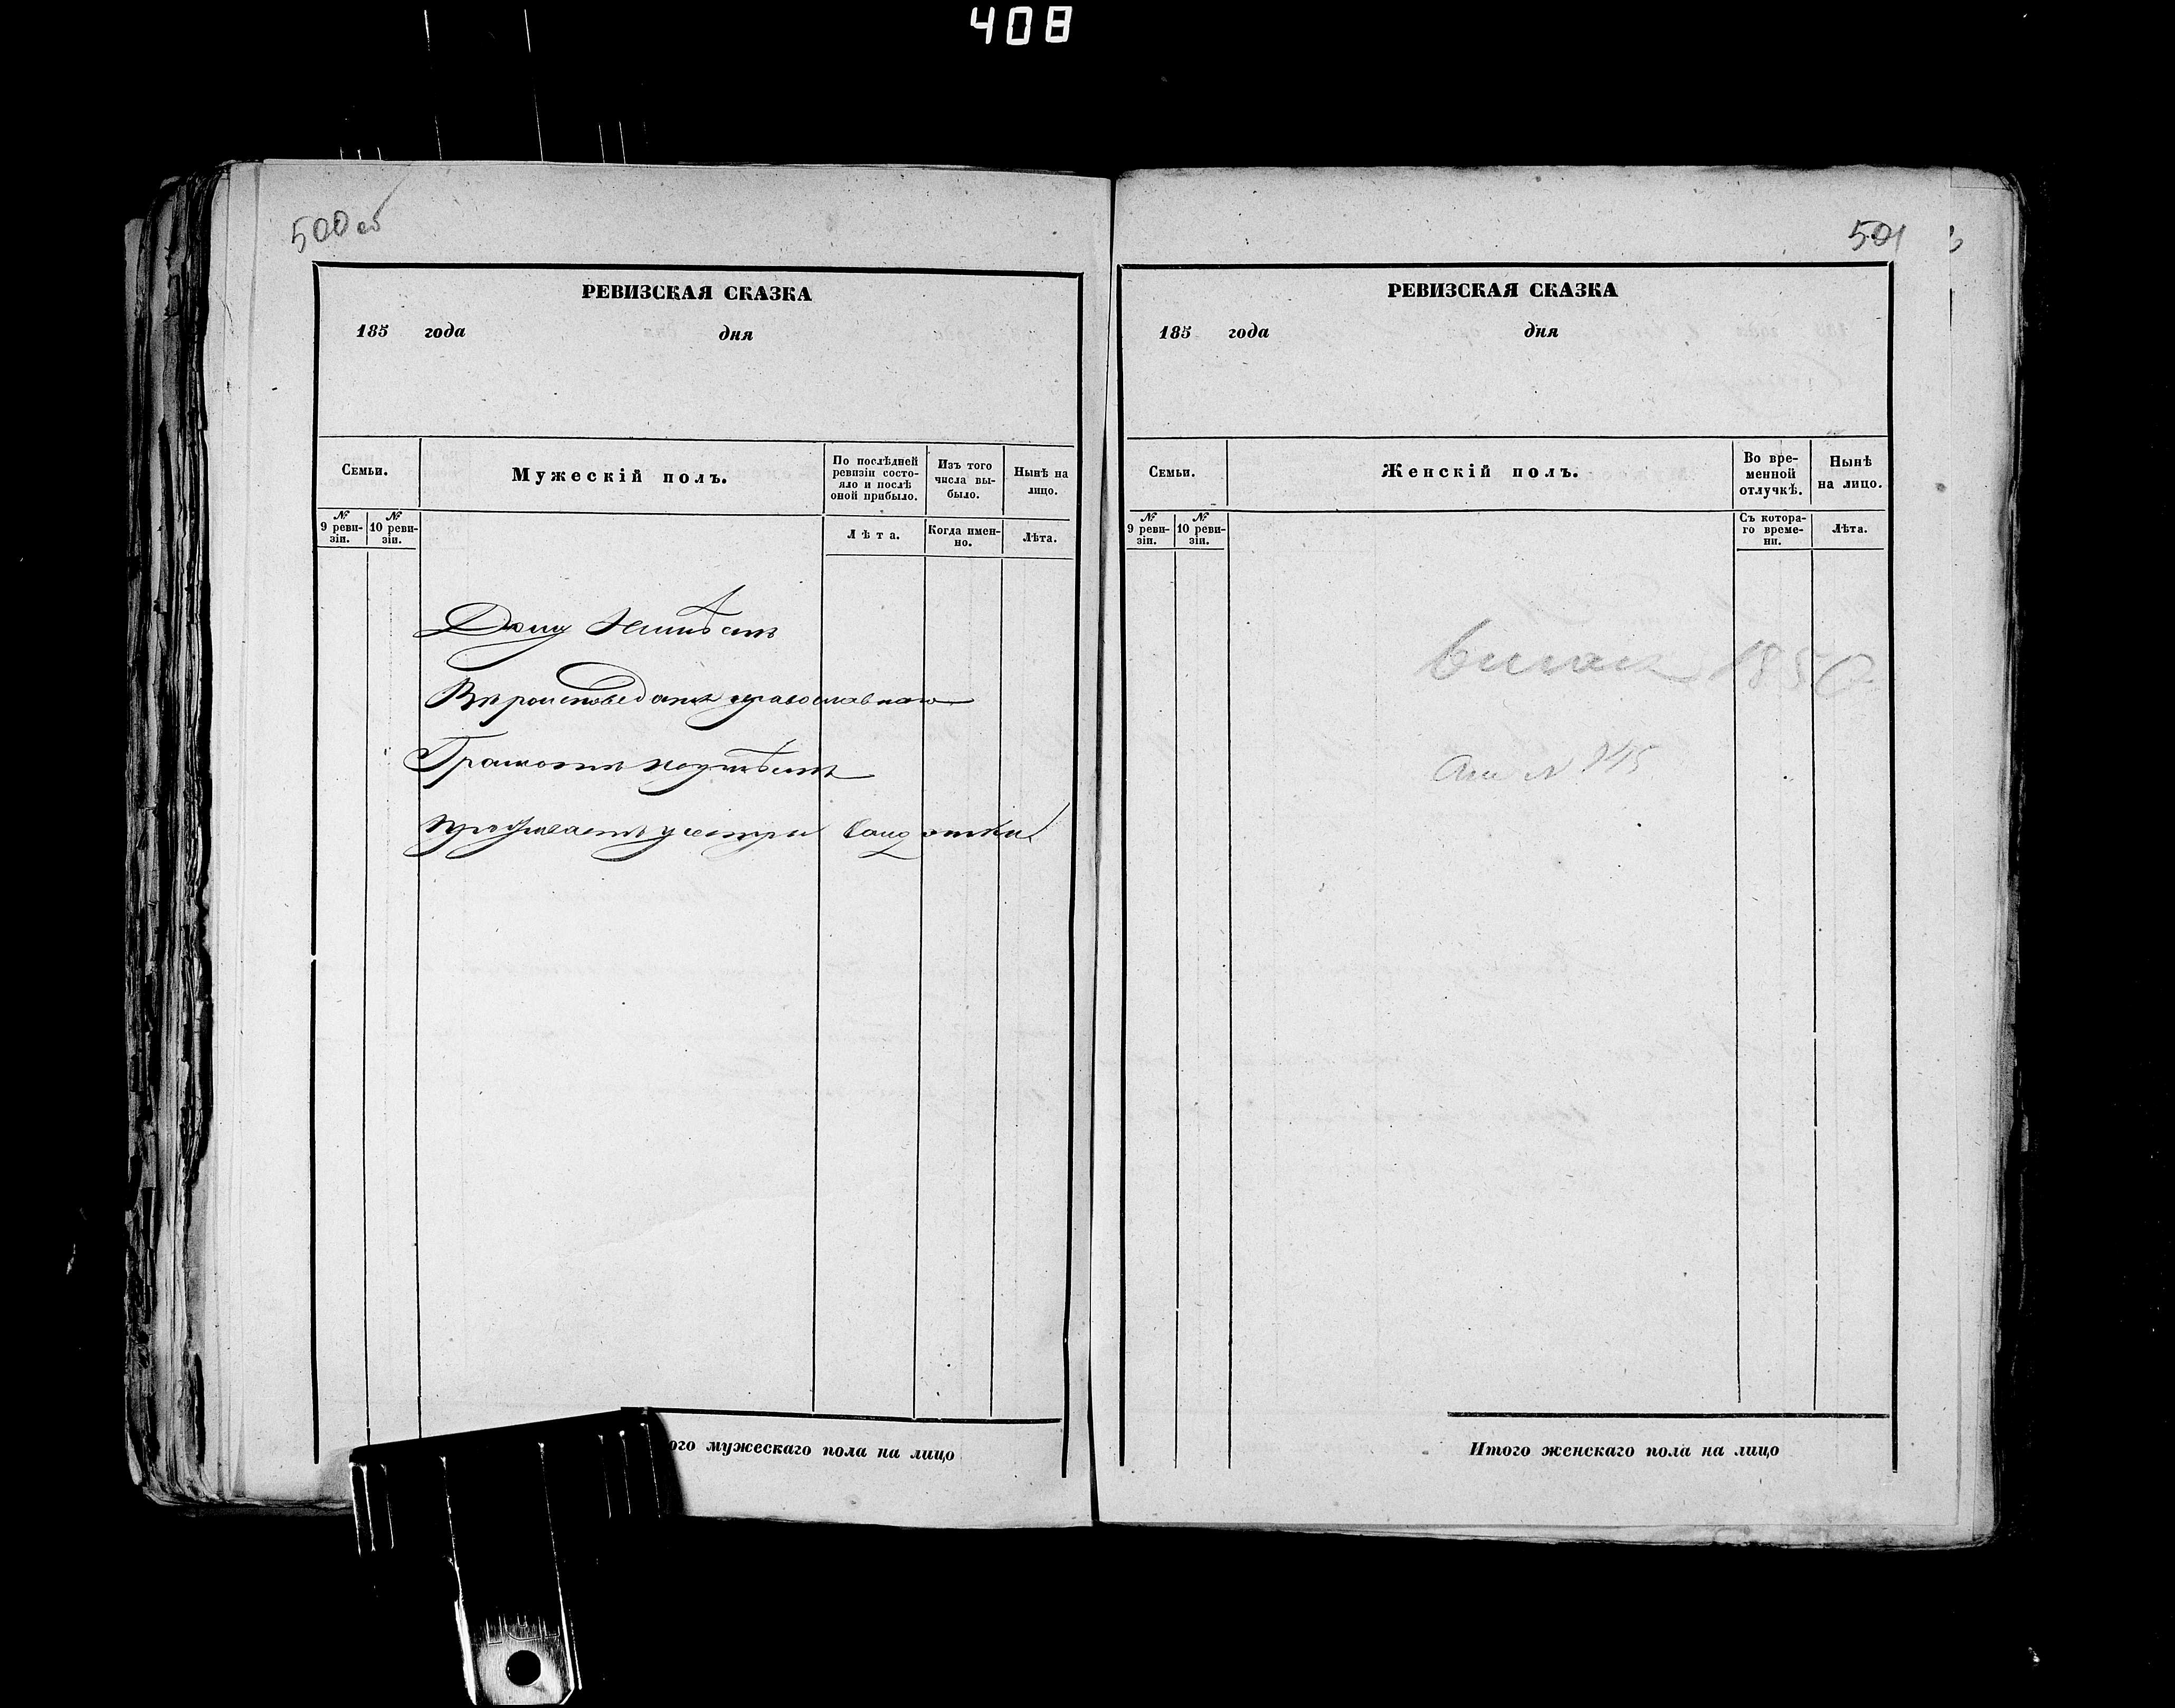 408
500 об
РЕВИЗСКАЯ СКАЗКА
185 года дня
Семьи.
Мужескій полъ.
По послѣдней ревизіи состояло и послѣ оной прибыло.
Изъ того числа выбыло.
Нынѣ на лицо.
№ 9 ревизіи.
№ 10 ревизіи.
Лѣта.
Когда именно.
Лѣта.
Дому неимѣетъ
Вѣроисповеданія православнаго
Грамотѣ неумѣетъ
проживаетъ у сестры
ого мужескаго пола на лицо
501
РЕВИЗСКАЯ СКАЗКА
185 года дня
Семьи.
Женскій полъ.
Во временной отлучкѣ.
Нынѣ на лицо.
№ 9 ревизіи.
№ 10 ревизіи.
Съ котораго времени.
Лѣта.
1850
Итого женскаго пола на лицо